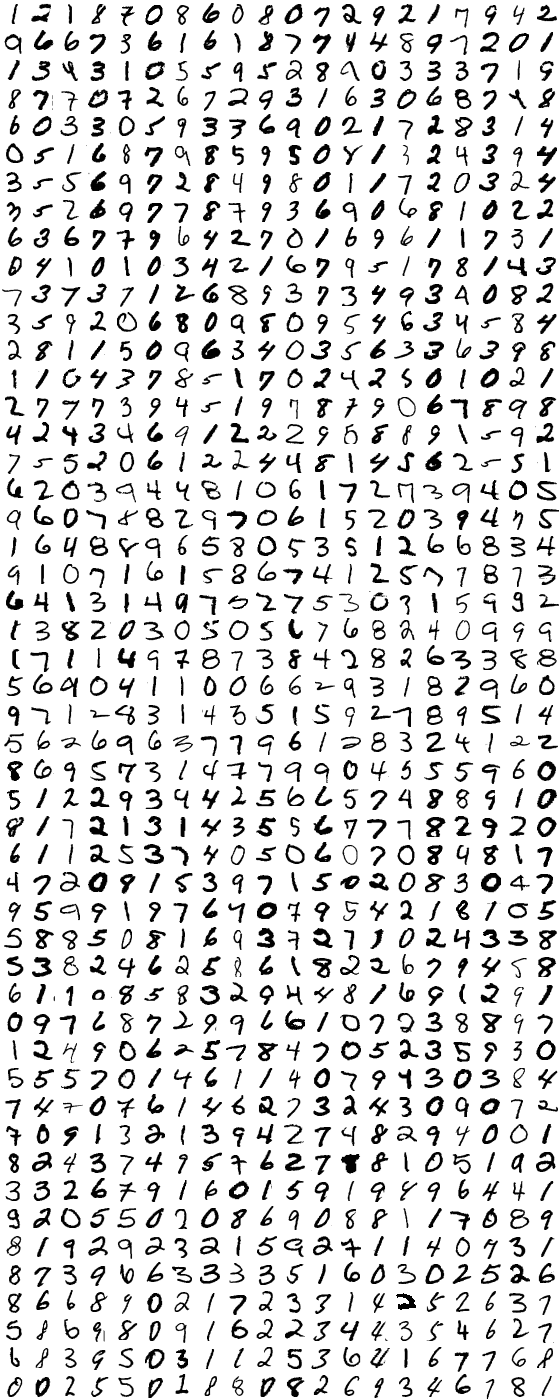 1 2 1 8 7 0 8 6 0 8 0 7 2 9 2 1 7 9 4 2
9 6 6 7 3 6 1 6 1 8 7 7 4 4 8 9 7 2 0 1
1 3 4 3 1 0 5 5 9 5 2 8 9 0 3 3 3 7 1 9
8 7 7 0 7 2 6 7 2 9 3 1 6 3 0 6 8 7 4 8
6 0 3 3 0 5 9 3 3 6 9 0 2 1 7 2 8 3 1 4
0 5 1 6 8 7 9 8 5 9 5 0 8 1 3 2 4 3 9 4
3 5 5 6 9 7 2 8 4 9 8 0 1 1 7 2 0 3 2 4
3 5 2 6 9 7 7 8 7 9 3 6 9 0 6 8 1 0 2 2
6 3 6 7 7 9 6 4 2 7 0 1 6 9 6 1 1 7 3 1
0 4 1 0 1 0 3 4 2 1 6 7 9 5 1 7 8 1 4 3
7 3 7 3 7 1 2 6 8 9 3 7 3 4 9 3 9 0 8 2
3 5 9 2 0 6 8 0 9 8 0 9 5 4 6 3 4 5 8 4
2 8 1 1 5 0 9 6 3 4 0 3 5 6 3 3 6 3 9 8
1 1 0 4 3 7 8 5 1 7 0 2 4 2 5 0 1 0 2 1
2 7 7 7 3 9 4 5 1 9 7 8 7 9 0 6 7 8 9 8
4 2 4 3 4 6 9 1 2 2 2 9 5 8 8 9 1 5 9 2
7 5 5 2 0 6 1 2 2 4 4 8 1 4 5 6 2 5 5 1
6 2 0 3 9 4 4 8 1 0 6 1 7 2 7 3 9 4 0 5
9 6 0 7 8 8 2 9 7 0 6 1 5 2 0 3 9 4 7 5
1 6 4 8 8 9 6 5 8 0 5 3 5 1 2 6 6 8 3 4
9 1 0 7 1 6 1 5 8 6 7 4 1 2 5 7 7 8 7 3
6 4 1 3 1 4 9 7 5 2 7 5 3 0 3 1 5 9 9 2
1 3 8 2 0 3 0 5 0 5 6 7 6 8 2 4 0 9 9 9
1 7 1 1 4 9 7 8 7 3 8 4 2 8 2 6 3 3 8 8
5 6 9 0 4 1 1 0 0 6 6 2 9 3 1 8 2 9 6 0
9 7 1 2 8 3 1 4 3 5 1 5 9 2 7 8 9 5 1 4
5 6 2 6 9 6 3 7 7 9 6 1 2 8 3 2 4 1 2 2
8 6 9 5 7 3 1 4 7 7 9 9 0 4 5 5 5 9 6 0
5 1 2 2 9 3 4 4 2 5 6 6 5 7 4 8 8 9 1 0
8 1 7 2 1 3 1 4 3 5 5 6 7 7 7 8 2 9 2 0
6 1 1 2 5 3 7 4 0 5 0 6 0 7 0 8 9 8 1 7
4 7 2 0 8 1 5 3 9 7 1 5 0 2 0 8 3 0 4 7
9 5 9 9 1 9 7 6 7 0 7 9 5 4 2 1 8 1 0 5
5 8 8 5 0 8 1 6 9 3 7 2 7 1 0 2 4 3 3 8
5 3 8 2 4 6 2 5 8 8 6 1 8 2 2 6 7 9 4 5 8
6 1 1 0 8 5 8 3 2 9 4 4 8 1 6 9 1 2 9 1
0 9 7 6 8 7 2 9 9 6 6 1 0 7 2 3 8 8 9 7
1 2 4 9 0 6 2 5 7 8 4 7 0 5 2 3 5 9 3 0
5 5 5 7 0 1 4 6 1 1 4 0 7 9 4 3 0 3 8 4
7 4 7 0 7 6 1 4 6 2 7 3 2 4 3 0 9 0 7 2
7 0 9 1 3 2 1 3 9 4 2 7 4 8 2 9 4 0 0 1
8 2 4 3 7 4 9 5 7 6 2 7 8 8 1 0 5 1 9 2
3 3 2 6 7 9 1 6 0 1 5 9 1 9 8 9 6 4 4 1
9 2 0 5 5 0 2 0 8 6 9 0 8 8 1 1 7 0 8 9
8 1 9 2 9 2 3 2 1 5 9 2 7 1 1 4 0 4 3 1
8 7 3 9 6 6 3 3 3 3 5 1 6 0 3 0 2 5 2 6
8 6 6 8 9 0 2 1 7 2 3 3 1 4 2 5 2 6 3 7
5 8 6 9 8 0 9 1 6 2 2 3 4 4 3 5 4 6 2 7
6 8 3 9 5 0 3 1 1 2 5 3 6 4 1 6 7 7 6 8
0 0 2 5 5 0 1 8 8 0 8 2 6 9 3 4 6 7 8 1